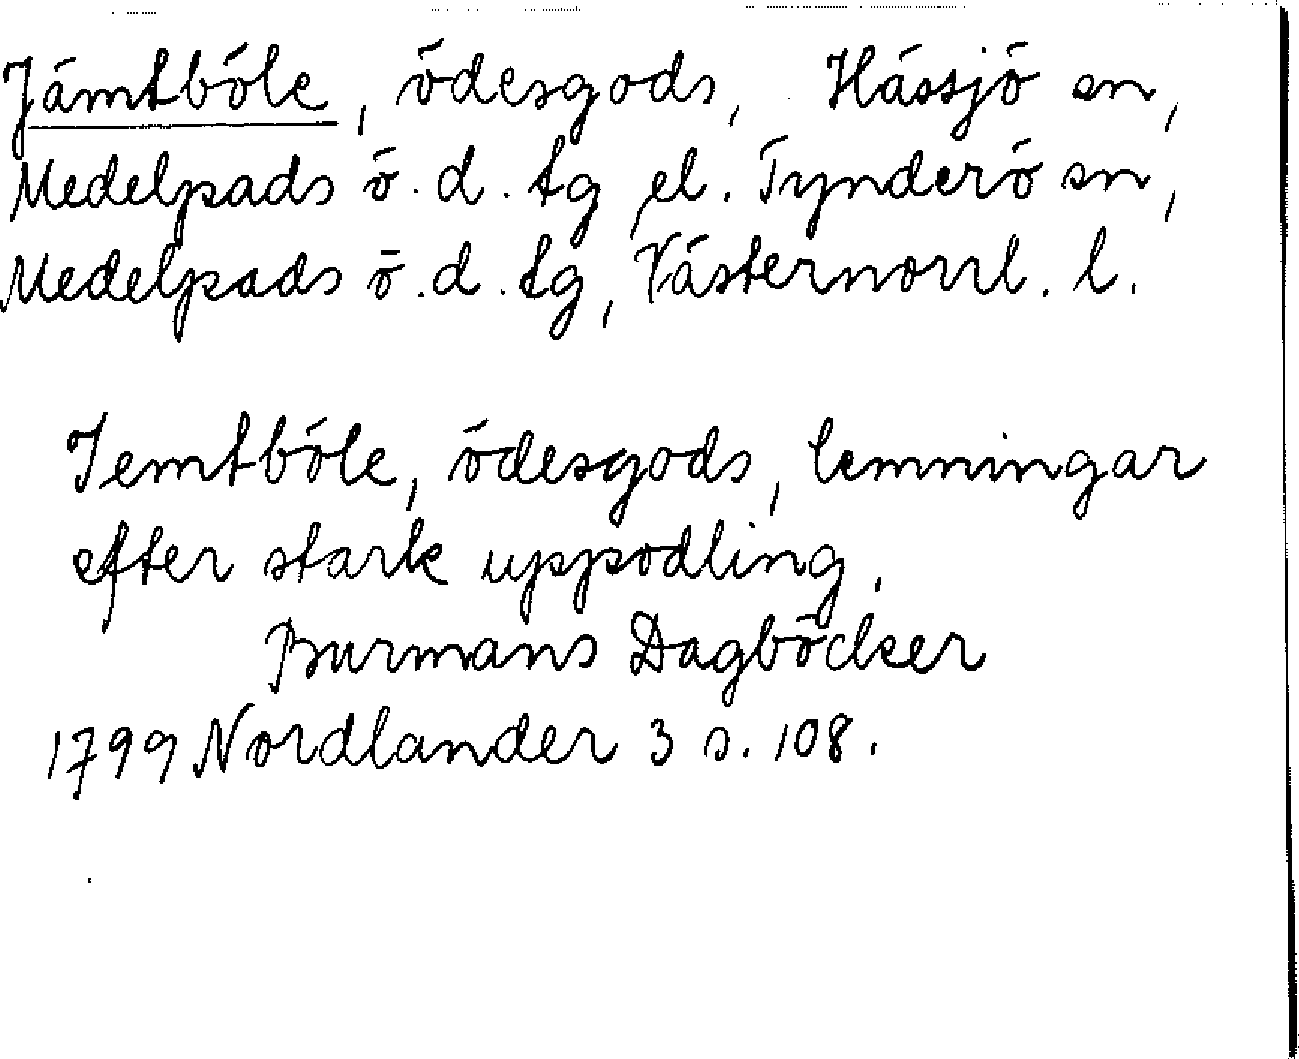 Jämtböle, ödesgods, Hässjö sn,
Medelpads ö. d. tg el. Tynderö sn,
Medelpads ö. d. tg, Västernorrl. l.
Jemtböle, ödesgods, lemningar
efter stark uppodling.
Burmans Dagböcker
1799 Nordlander 3 s. 108.